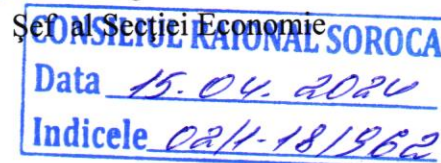 Şef al Secţiei Economie
CONSILIUL RAIONAL SOROCA
Data 15.04.2024
Indicele 02/1-18/962